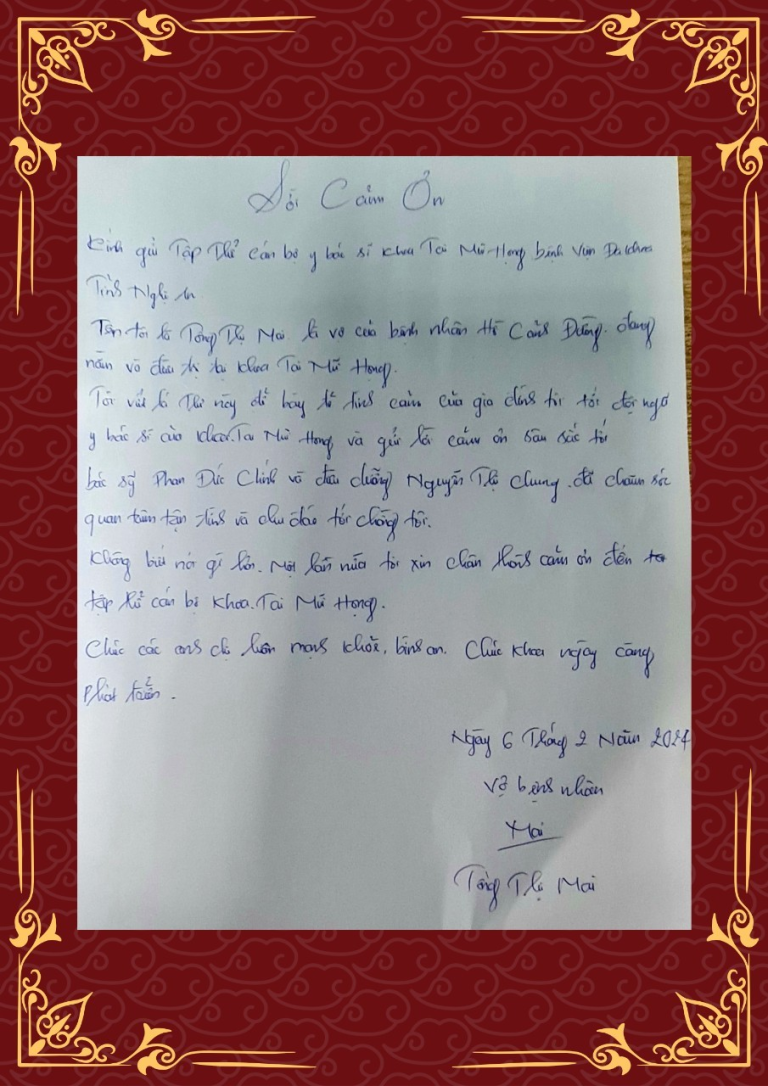 Lời Cảm Ơn
Kính gửi Tập Thể cán bộ y bác sĩ khoa Tai Mũi Họng bệnh Viện Đa khoa
Tỉnh Nghệ An
Tên tôi là Tống Thị Mai là vợ của bệnh nhân Hồ Cảnh Đường. đang
nằm và điều trị tại khoa Tai Mũi Họng.
Tôi viết lá thư này để bày tỏ tình cảm của gia đình tôi tới đội ngũ
y bác sĩ của khoa. Tai Mũi Họng và gửi lời cảm ơn sâu sắc tới
bác sỹ Phan Đức Chính và điều dưỡng Nguyễn Thị Chung. đã chăm sóc
quan tâm tận tình và chu đáo tới chồng tôi.
Không biết nói gì hơn. Một lần nữa tôi xin chân thành cảm ơn đến
tập thể cán bộ khoa. Tai Mũi Họng.
Chúc các anh chị luôn mạnh khỏe, bình an. Chúc khoa ngày càng
phát triển.
Ngày 6 Tháng 2 Năm 2024
Vợ bệnh nhân
Mai
Tống Thị Mai